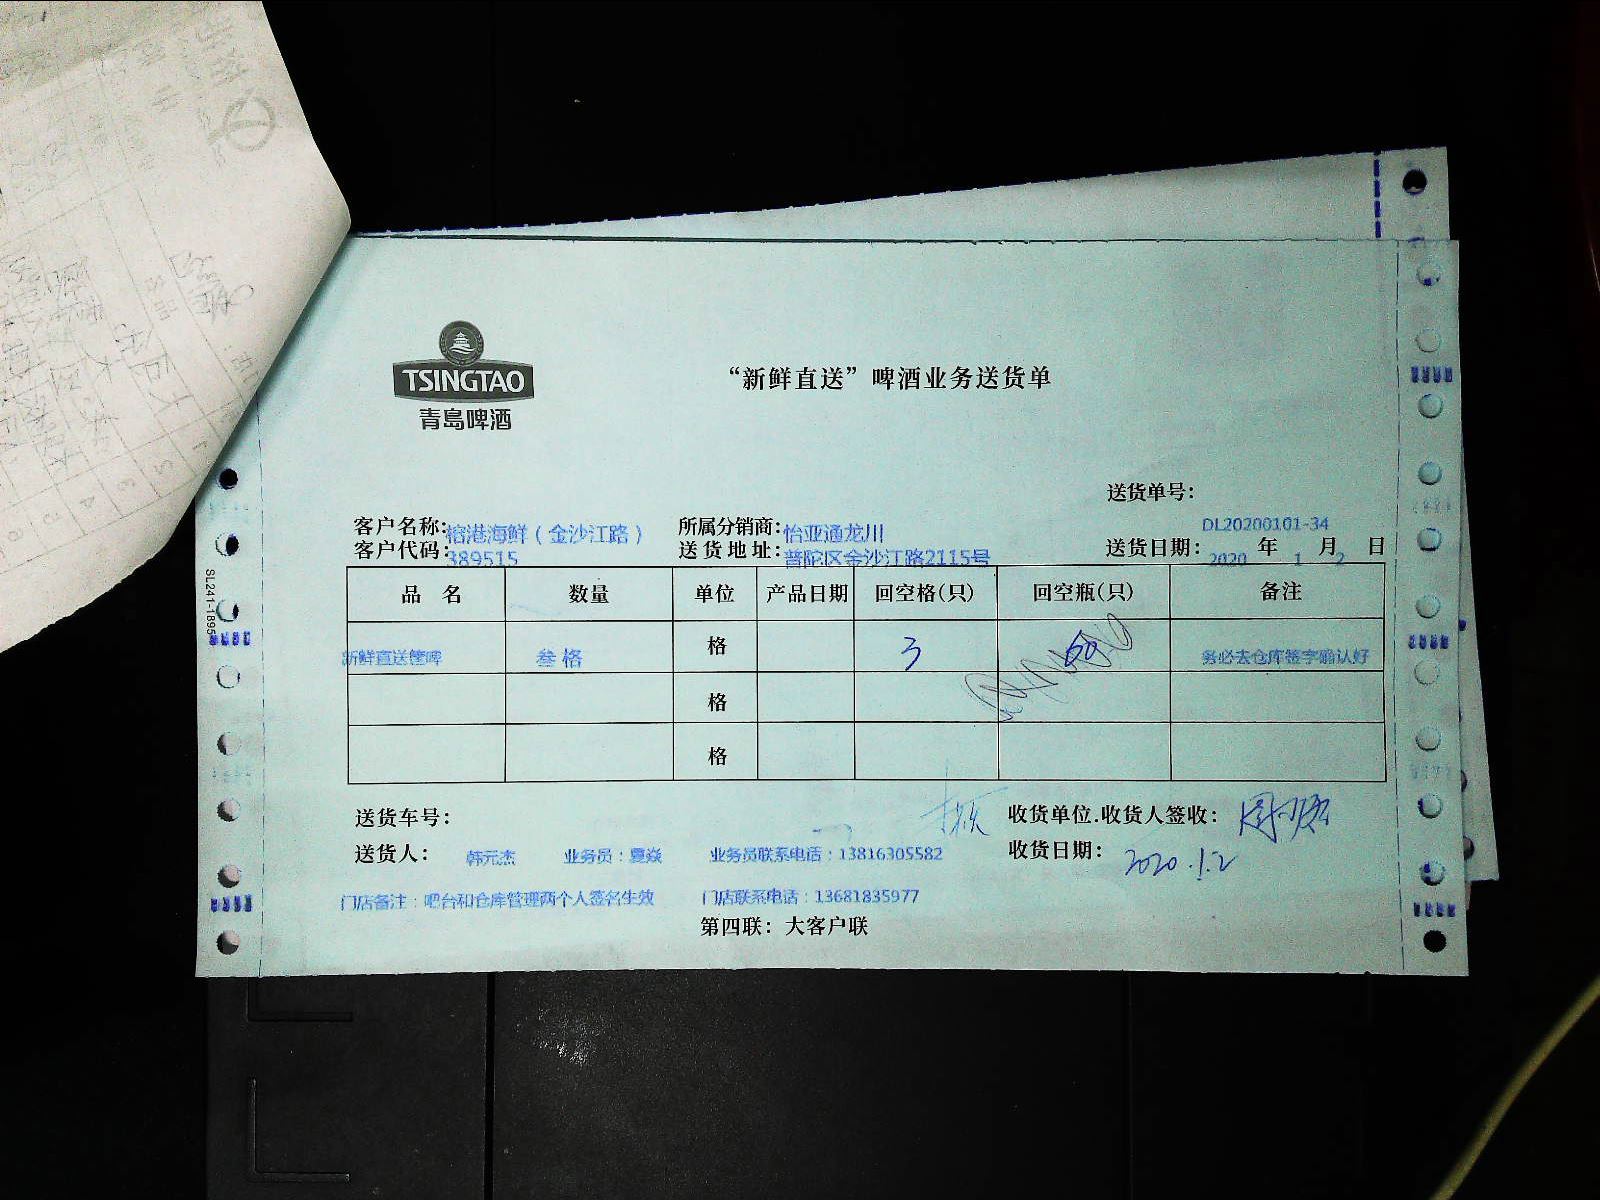 TSINGTAO
青岛啤酒
“新鲜直送”啤酒业务送货单
送货单号：
DL20200101-34
客户名称：榕港海鲜（金沙江路） 所属分销商：怡亚通龙川
客户代码：389515 送货地址：普陀区金沙江路2115号 送货日期：2020 年 1 月 2 日
品 名 数量 单位 产品日期 回空格(只) 回空瓶(只) 备注
新鲜直送筐啤 叁格 格 3 60 务必去仓库签字确认好
格
格
送货车号： 收货单位.收货人签收：
送货人： 韩元杰 业务员：夏焱 业务员联系电话：13816305582 收货日期： 2020.1.2
门店备注：吧台和仓库管理两个人签名生效 门店联系电话：13681835977
第四联：大客户联